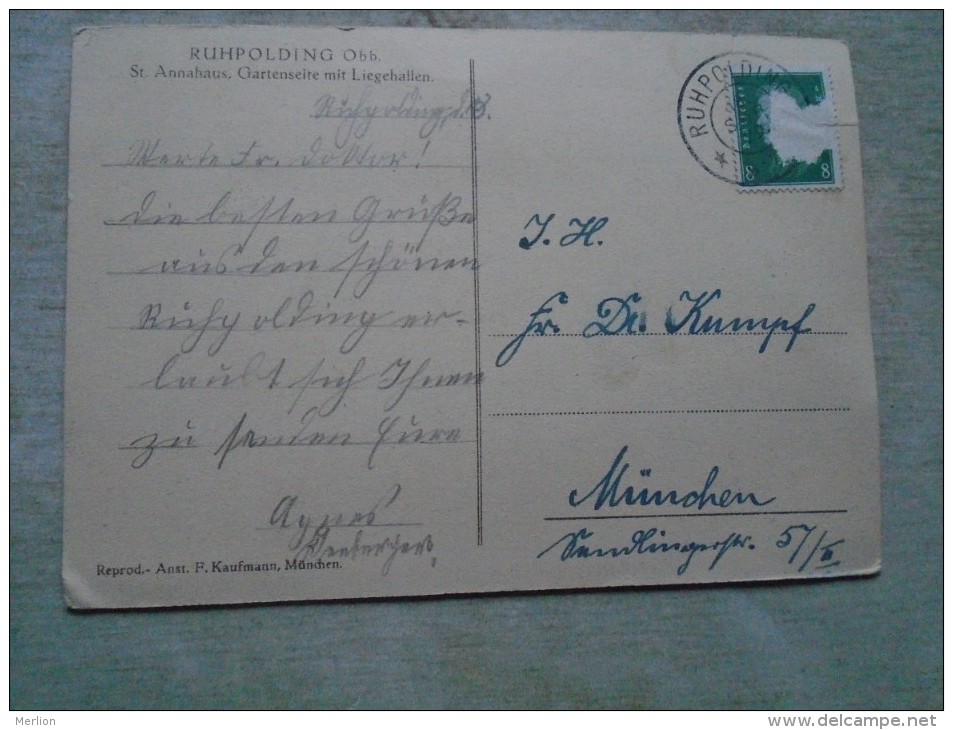 RUHPOLDING Obb.
St. Annahaus, Gartenseite mit Liegehallen.
Ruhpolding,
Werte Fr. Doktor!
Die besten Grüße
aus den schönen
Ruhpolding er-
laubt sich Ihnen
zu senden Eure
Agnes
Reprod.- Anst. F. Kaufmann, München.
RUHPOLDING
Deutsches
8 8
I. H.
Fr. Dr. Kumpf
München
Sendlingerstr. 57/II
Merlion
http://www.delcampe.net